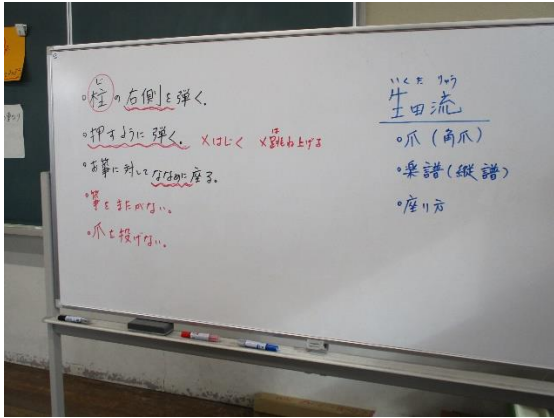 じ
○柱の右側を弾く。
○押すように弾く。 ×はじく ×跳ね上げる
は
○お箏に対してななめに座る。
○箏をまたがない。
○爪を投げない。
いくた りゅう
生田流
○爪（角爪）
○楽譜（縦譜）
○座り方